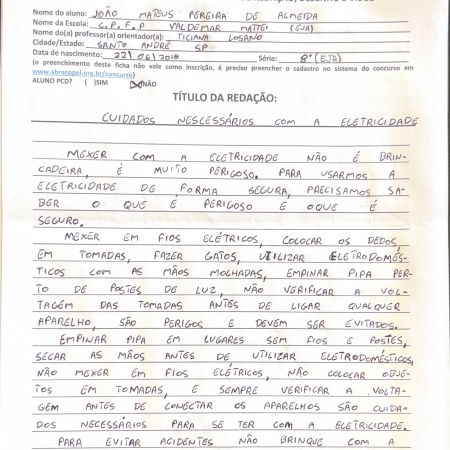 Nome do aluno: JOÃO MATEUS PEREIRA DE ALMEIDA
Nome da Escola: C.P.F.P VALDEMAR MATTEI (EJA)
Nome do(a) professor(a) orientador(a): TICIANA LOSANO
Cidade/Estado: SANTO ANDRÉ SP
Data de nascimento: Série: 8ª (EJA)
(o preenchimento desta ficha não vale como inscrição, é preciso preencher o cadastro no sistema do concurso em
www.abracopel.org.br/concurso)
ALUNO PCD? ( )SIM (X)NÃO
TÍTULO DA REDAÇÃO:
CUIDADOS NESCESSÁRIOS COM A ELETRICIDADE
MEXER COM A ELETRICIDADE NÃO É BRIN-
CADEIRA, É MUITO PERIGOSO. PARA USARMOS A
ELETRICIDADE DE FORMA SEGURA, PRECISAMOS SA-
BER O QUE É PERIGOSO E OQUE É
SEGURO.
MEXER EM FIOS ELÉTRICOS, COLOCAR OS DEDOS,
EM TOMADAS, FAZER GATOS, UTILIZAR ELETRODOMÉS-
TICOS COM AS MÃOS MOLHADAS, EMPINAR PIPA PER-
TO DE POSTES DE LUZ, NÃO VERIFICAR A VOL-
TAGEM DAS TOMADAS ANTES DE LIGAR QUALQUER
APARELHO, SÃO PERIGOS E DEVEM SER EVITADOS.
EMPINAR PIPA EM LUGARES SEM FIOS E POSTES,
SECAR AS MÃOS ANTES DE UTILIZAR ELETRODOMÉSTICOS,
NÃO MEXER EM FIOS ELÉTRICOS, NÃO COLOCAR OBJE-
TOS EM TOMADAS, E SEMPRE VERIFICAR A VOLTA-
GEM ANTES DE CONECTAR OS APARELHOS SÃO CUIDA-
DOS NECESSÁRIOS PARA SE TER COM A ELETRICIDADE.
PARA EVITAR ACIDENTES NÃO BRINQUE COM A